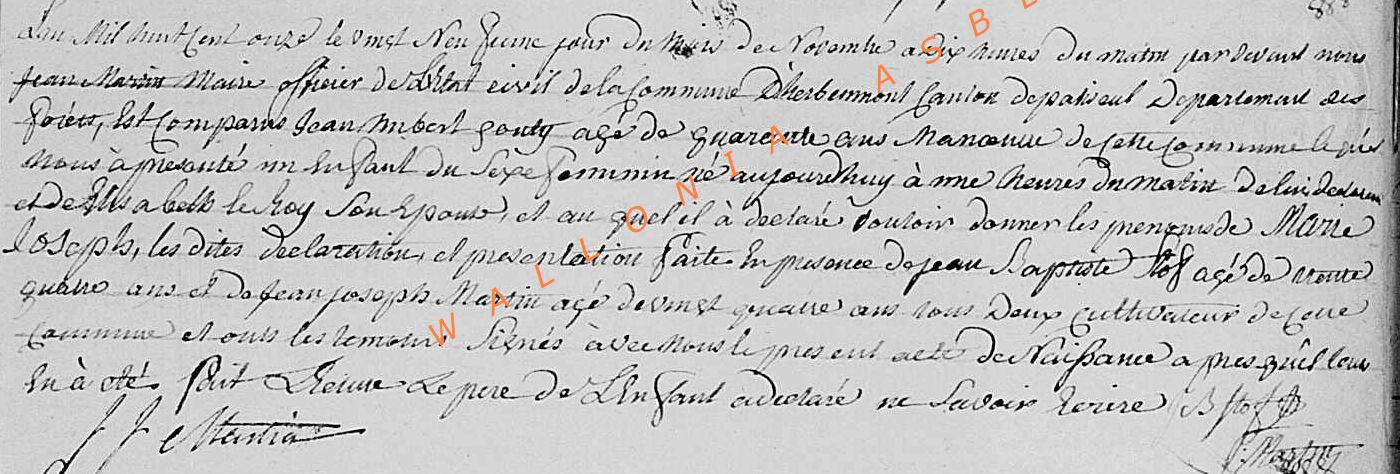 L'an Mil huit Cent onze le vingt Neufieme jour du Mois de Novembre a Dix heures du matin par devant nous
Jean Martin Maire officier de L'Etat civil de la Commune D'herbeumont Canton de paliseul Departement des
Forets, Est Comparus Jean hubert gouty agé de quarente ans Manœuvre de cette Commune lequél
Nous à presenté un Enfant du Sexe Feminin né aujourdhuy à une heures du Matin de lui declarant
et de Elisabeth le Roy Son Epouse, et au quel il à declaré vouloir donner les prenoms de Marie
Joseph, les dites declaration, et presentation Faite En presence de jean Baptiste Stof agé de trente
quatre ans et de Jean joseph Martin agé de vingt quatre ans tous Deux cultivateur de cette
Commune et onts les temoins Signés àvec Nous le present acte de Naissance apres qu'il leur
En à été Fait Lecture Le pere de L'Enfant a declaré ne Savoir Ecrire B Stof
J J Martin
Martin
WALLONIA ASBL